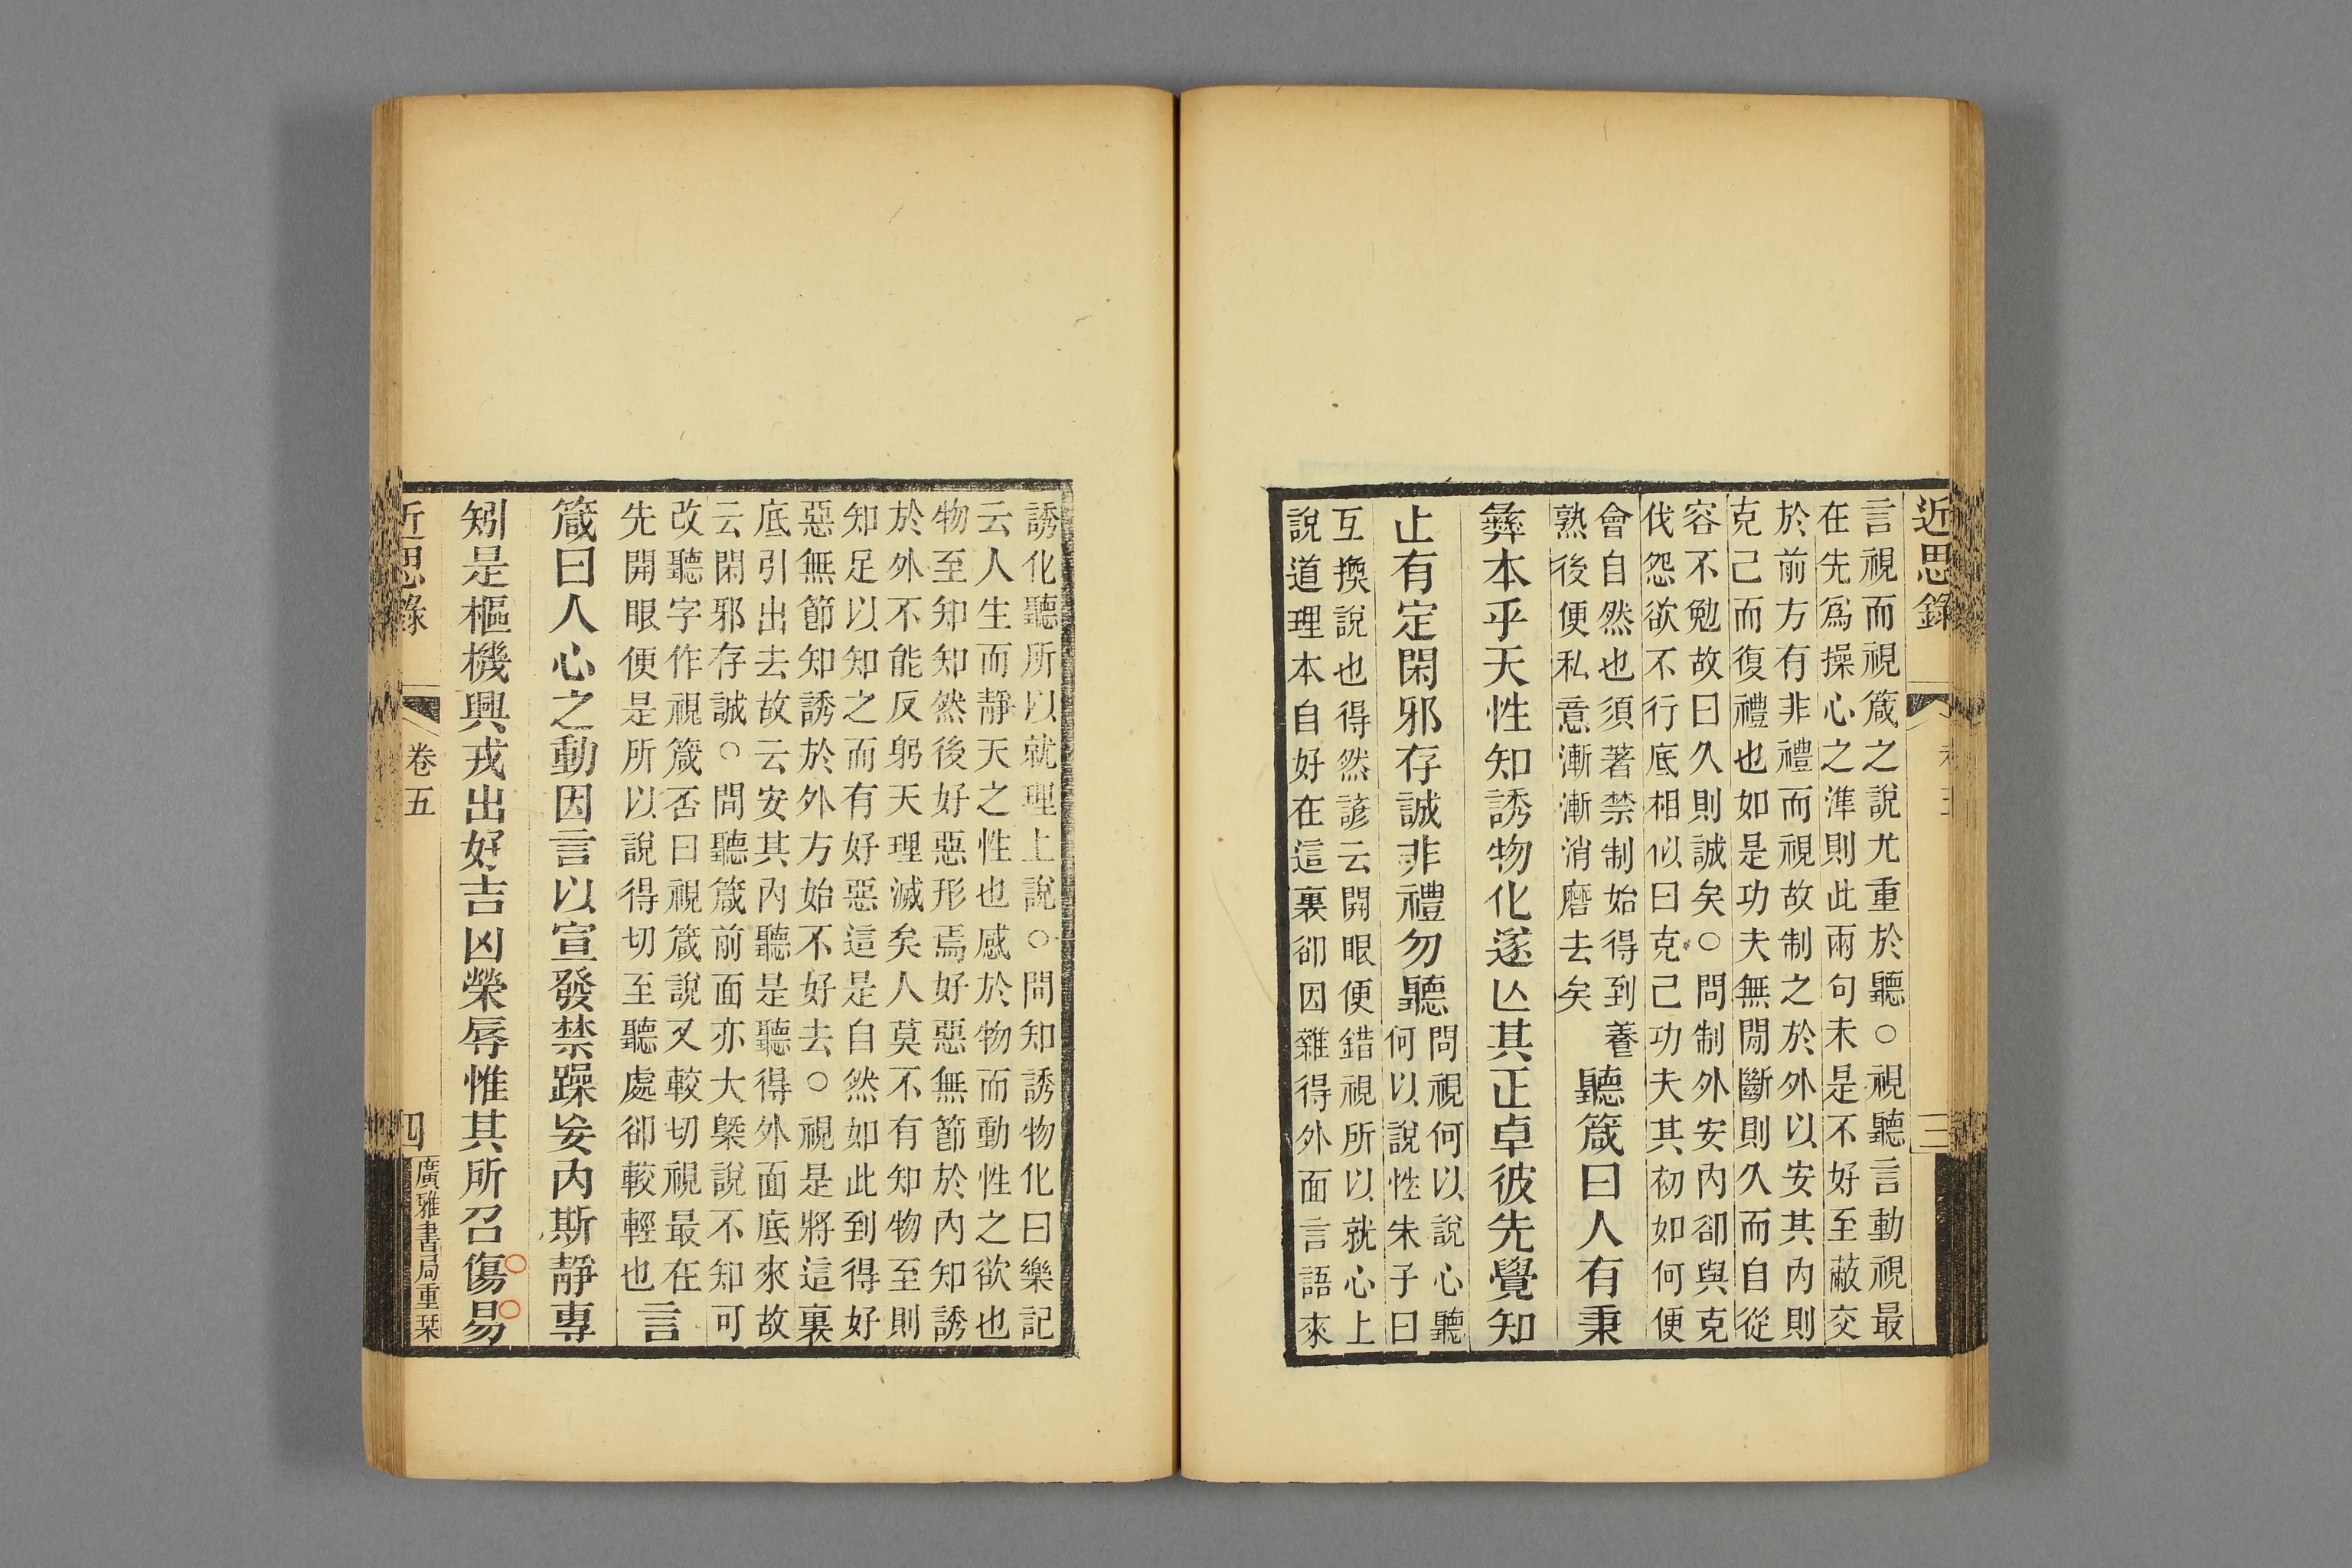 近思錄
三
言視而視箴之說尤重於聽○視聽言動視最
在先爲操心之準則此兩句未是不好至蔽交
於前方有非禮而視故制之於外以安其內則
克己而復禮也如是功夫無閒斷則久而自從
容不勉故曰久則誠矣○問制外安內卻與克
伐怨欲不行底相似曰克己功夫其初如何便
會自然也須著禁制始得到養
熟後便私意漸漸消磨去矣
聽箴曰人有秉
彝本乎天性知誘物化遂亾其正卓彼先覺知
止有定閑邪存誠非禮勿聽
問視何以說心聽
何以說性朱子曰
互換說也得然諺云開眼便錯視所以就心上
說道理本自好在這裏卻因雜得外面言語來
誘化聽所以就理上說○問知誘物化曰樂記
云人生而靜天之性也感於物而動性之欲也
物至知知然後好惡形焉好惡無節於內知誘
於外不能反躬天理滅矣人莫不有知物至則
知足以知之而有好惡這是自然如此到得好
惡無節知誘於外方始不好去○視是將這裏
底引出去故云安其內聽是聽得外面底來故
云閑邪存誠○問聽箴前面亦大槩說不知可
改聽字作視箴否曰視箴說又較切視最在
先開眼便是所以說得切至聽處卻較輕也
言
箴曰人心之動因言以宣發禁躁妄內斯靜專
矧是樞機興戎出好吉凶榮辱惟其所召傷易
近思錄
卷五
四
廣雅書局重栞